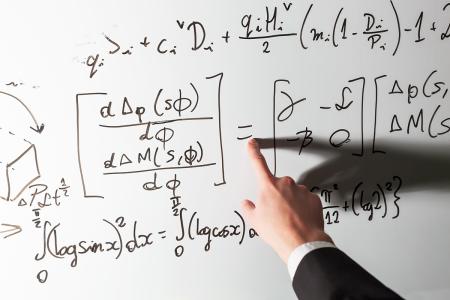 q_i >_i + c_i^v D_i + q_i H_i^v / 2 (m_i (1 - D_i / P_i) - 1 + 2
[ d Δp (sϕ) / dϕ
d ΔM(s,ϕ) / dϕ ] = [ γ -ℒ
-β 0 ] [ Δp(s,
ΔM(s
ΔPLt^{1/2}
∫_0^{π/2} (log sin x)^2 dx = ∫_0^{π/2} (log cos x) π^2 / 12 + (log 2)^2 }